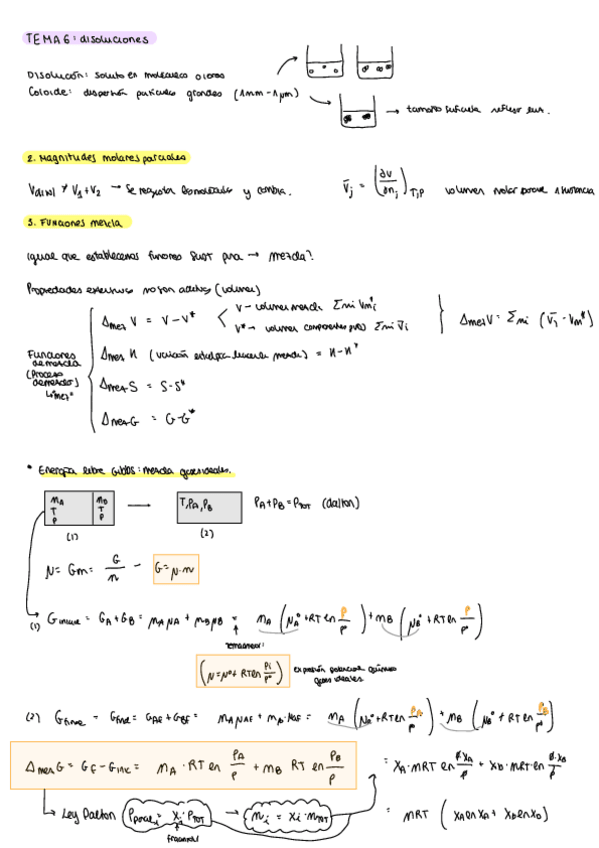 TEMA 6: disoluciones
Disolución: soluto en moléculas o iones
Coloide: dispersión partículas grandes (1nm-1μm)
→ tamaño suficiente reflejar luz.
2. Magnitudes molares parciales
V_disol ≠ V₁+V₂ → se reajustan las moléculas y cambia.
V̄j = (∂V/∂nj)T,P volumen molar parcial
3. Funciones mezcla
igual que establecemos funciones para → mezcla?
Propiedades extensivas no son aditivas (volumen)
Funciones de mezcla
(Proceso de mezclado)
Δmez V = V-V*
V → volumen mezcla
V* → volumen componentes puros
ΔmezV = Σni (V̄i - Vm*)
Δmez H = H-H*
Δmez S = S-S*
Δmez G = G-G*
• Energía libre Gibbs: mezcla gases ideales.
nA T P
nB T P
→
T, PA, PB
PA+PB = PTOT (dalton)
(1)
(2)
μ = Gm = G/n → G=μ·n
(1) Ginicial = GA+GB = nAμA + nBμB = nA (μA°+RT ln P/P°) + nB (μB°+RT ln P/P°)
(μ=μ°+RT ln Pi/P°) expresión potencial químico gases ideales
(2) Gfinal = = GAF+GBF = = nA (μA°+RT ln PA/P°) + nB (μB°+RT ln PB/P°)
ΔmezG = GF-Ginic = nA·RT ln PA/P + nB RT ln PB/P
= XA·nRT ln P·XA/P + XB·nRT ln P·XB/P
→ Ley Dalton (Pparc i = Xi·PTOT) → (ni = Xi·nTOT)
= nRT (XA ln XA + XB ln XB)